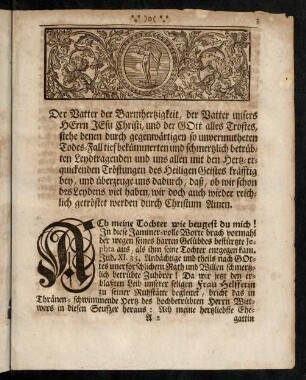 )o(
3
Der Vatter der Barmhertzigkeit, der Vatter unsers
HErrn JEsu Christi, und der GOtt alles Trostes,
stehe denen durch gegenwärtigen so unvermutheten
Todes-Fall tief bekümmerten und schmertzlich betrüb-
ten Leydtragenden und uns allen mit den Hertz-er-
quickenden Tröstungen des Heiligen Geistes kräfftig
bey, und überzeuge uns dadurch, daß, ob wir schon
des Leydens viel haben, wir doch auch wieder reich-
lich getröstet werden durch Christum Amen.
ACh meine Tochter wie beugest du mich!
In diese Jammer-volle Worte brach vormahl
der wegen seines harten Gelübdes bestürtzte Je-
phta aus, als ihm seine Tochter entgegen kam.
Jud. XI. 35. Andächtige und theils nach GOt-
tes unerforschlichem Rath und Willen schmertz-
lich betrübte Zuhörer! Da wir jetzt den er-
blaßten Leib unserer seligen Frau Helfferin
zu seiner Ruhstätte begleitet, bricht das in
Thränen-schwimmende Hertz des hochbetrübten Herrn Witt-
wers in diesen Seufzer heraus: Ach meine hertzliebste Ehe-
A 2 gattin